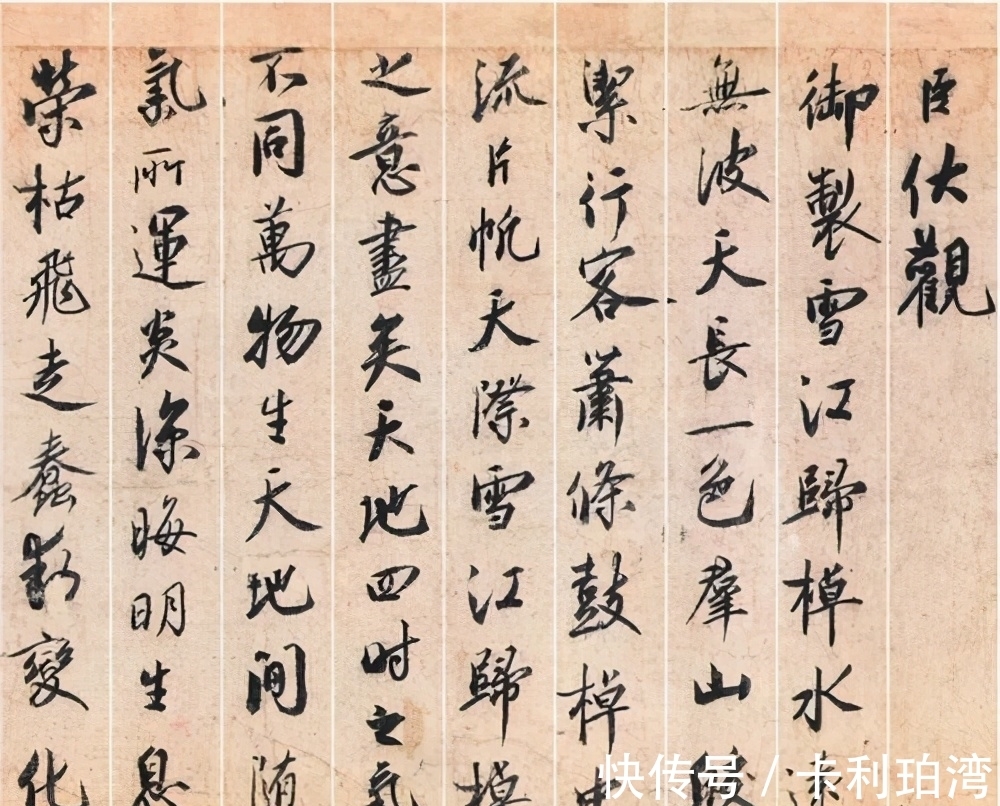 臣伏觀
御製雪江歸棹水
無波天長一色羣山
潔行客蕭條鼓棹
流片帆天際雪江歸棹
之意盡矣天地四时之氣
不同萬物生天地間随
氣所運炎涼晦明生息
榮枯飛走蠢動變化
快传号 / 卡利珀湾